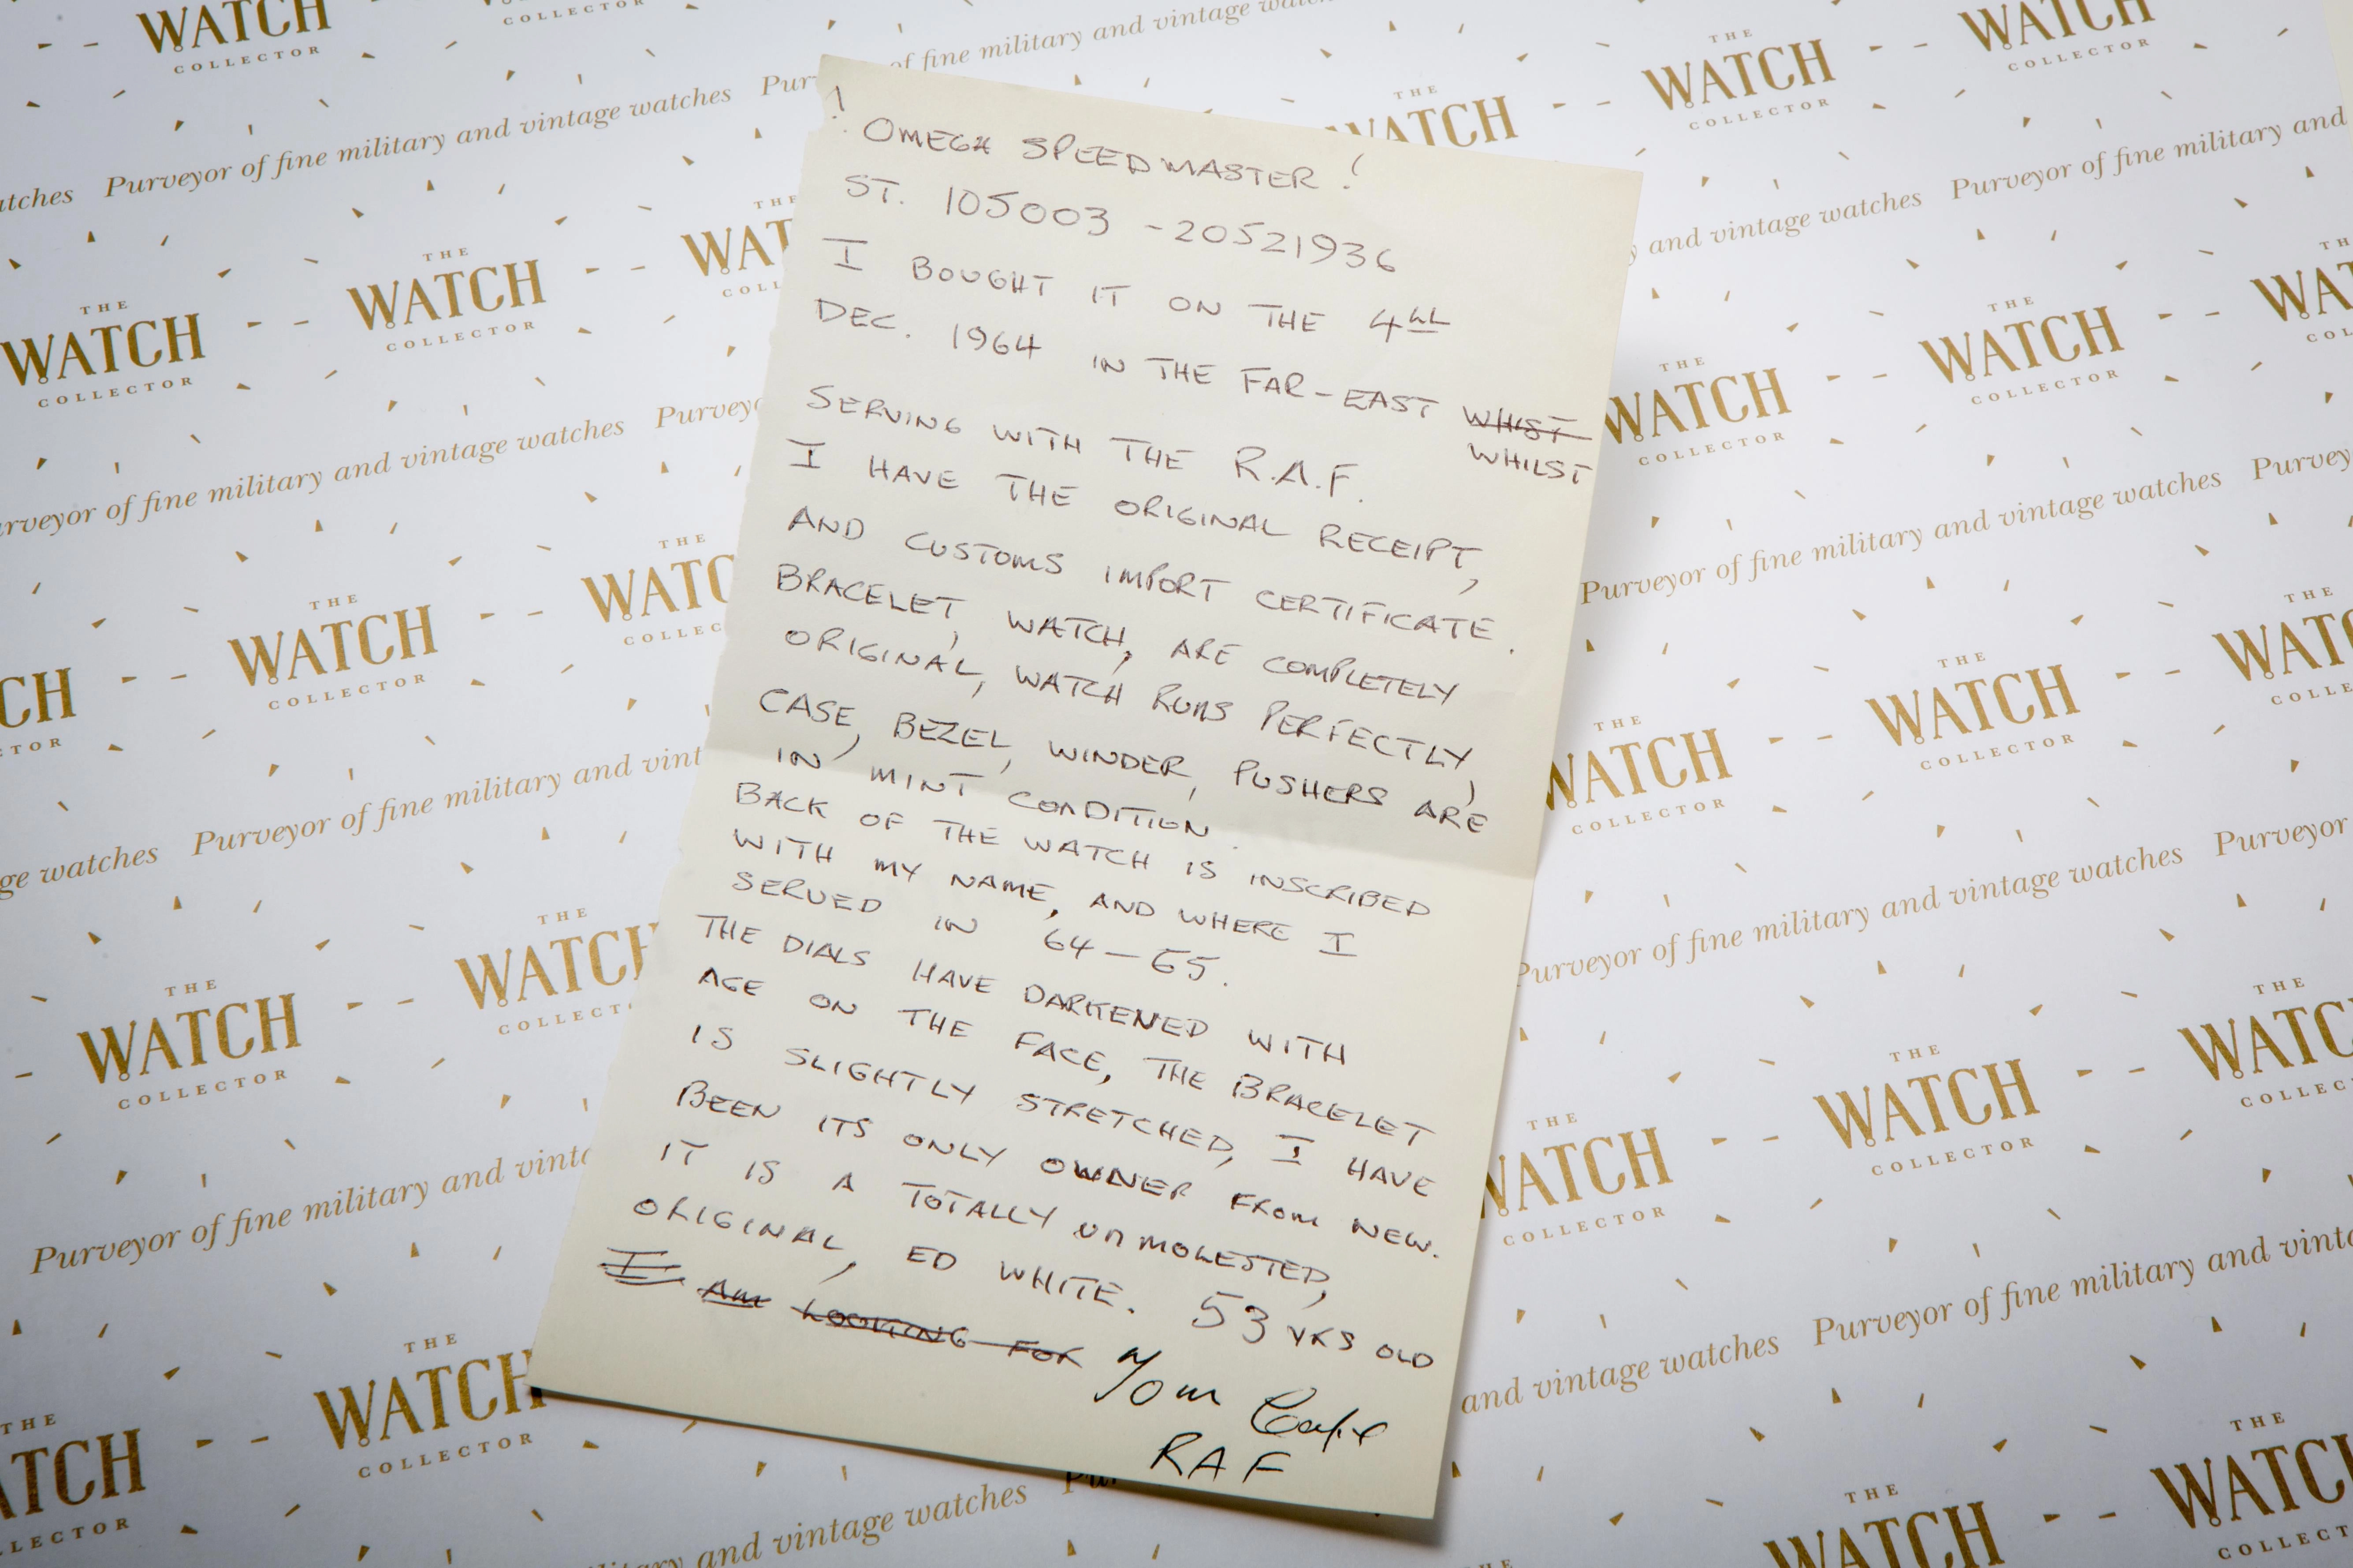 ! OMEGA SPEEDMASTER !
ST. 105003 - 20521936
I BOUGHT IT ON THE 4th
DEC. 1964 IN THE FAR-EAST WHIST
WHILST
SERVING WITH THE R.A.F.
I HAVE THE ORIGINAL RECEIPT,
AND CUSTOMS IMPORT CERTIFICATE.
BRACELET, WATCH, ARE COMPLETELY
ORIGINAL, WATCH RUNS PERFECTLY,
CASE, BEZEL, WINDER, PUSHERS ARE
IN MINT CONDITION.
BACK OF THE WATCH IS INSCRIBED
WITH MY NAME, AND WHERE I
SERVED IN 64-65.
THE DIALS HAVE DARKENED WITH
AGE ON THE FACE, THE BRACELET
IS SLIGHTLY STRETCHED, I HAVE
BEEN ITS ONLY OWNER FROM NEW.
IT IS A TOTALLY UNMOLESTED,
ORIGINAL, ED WHITE. 53 YRS OLD
I AM LOOKING FOR
RAF
THE
WATCH
COLLECTOR
Purveyor of fine military and vintage watches